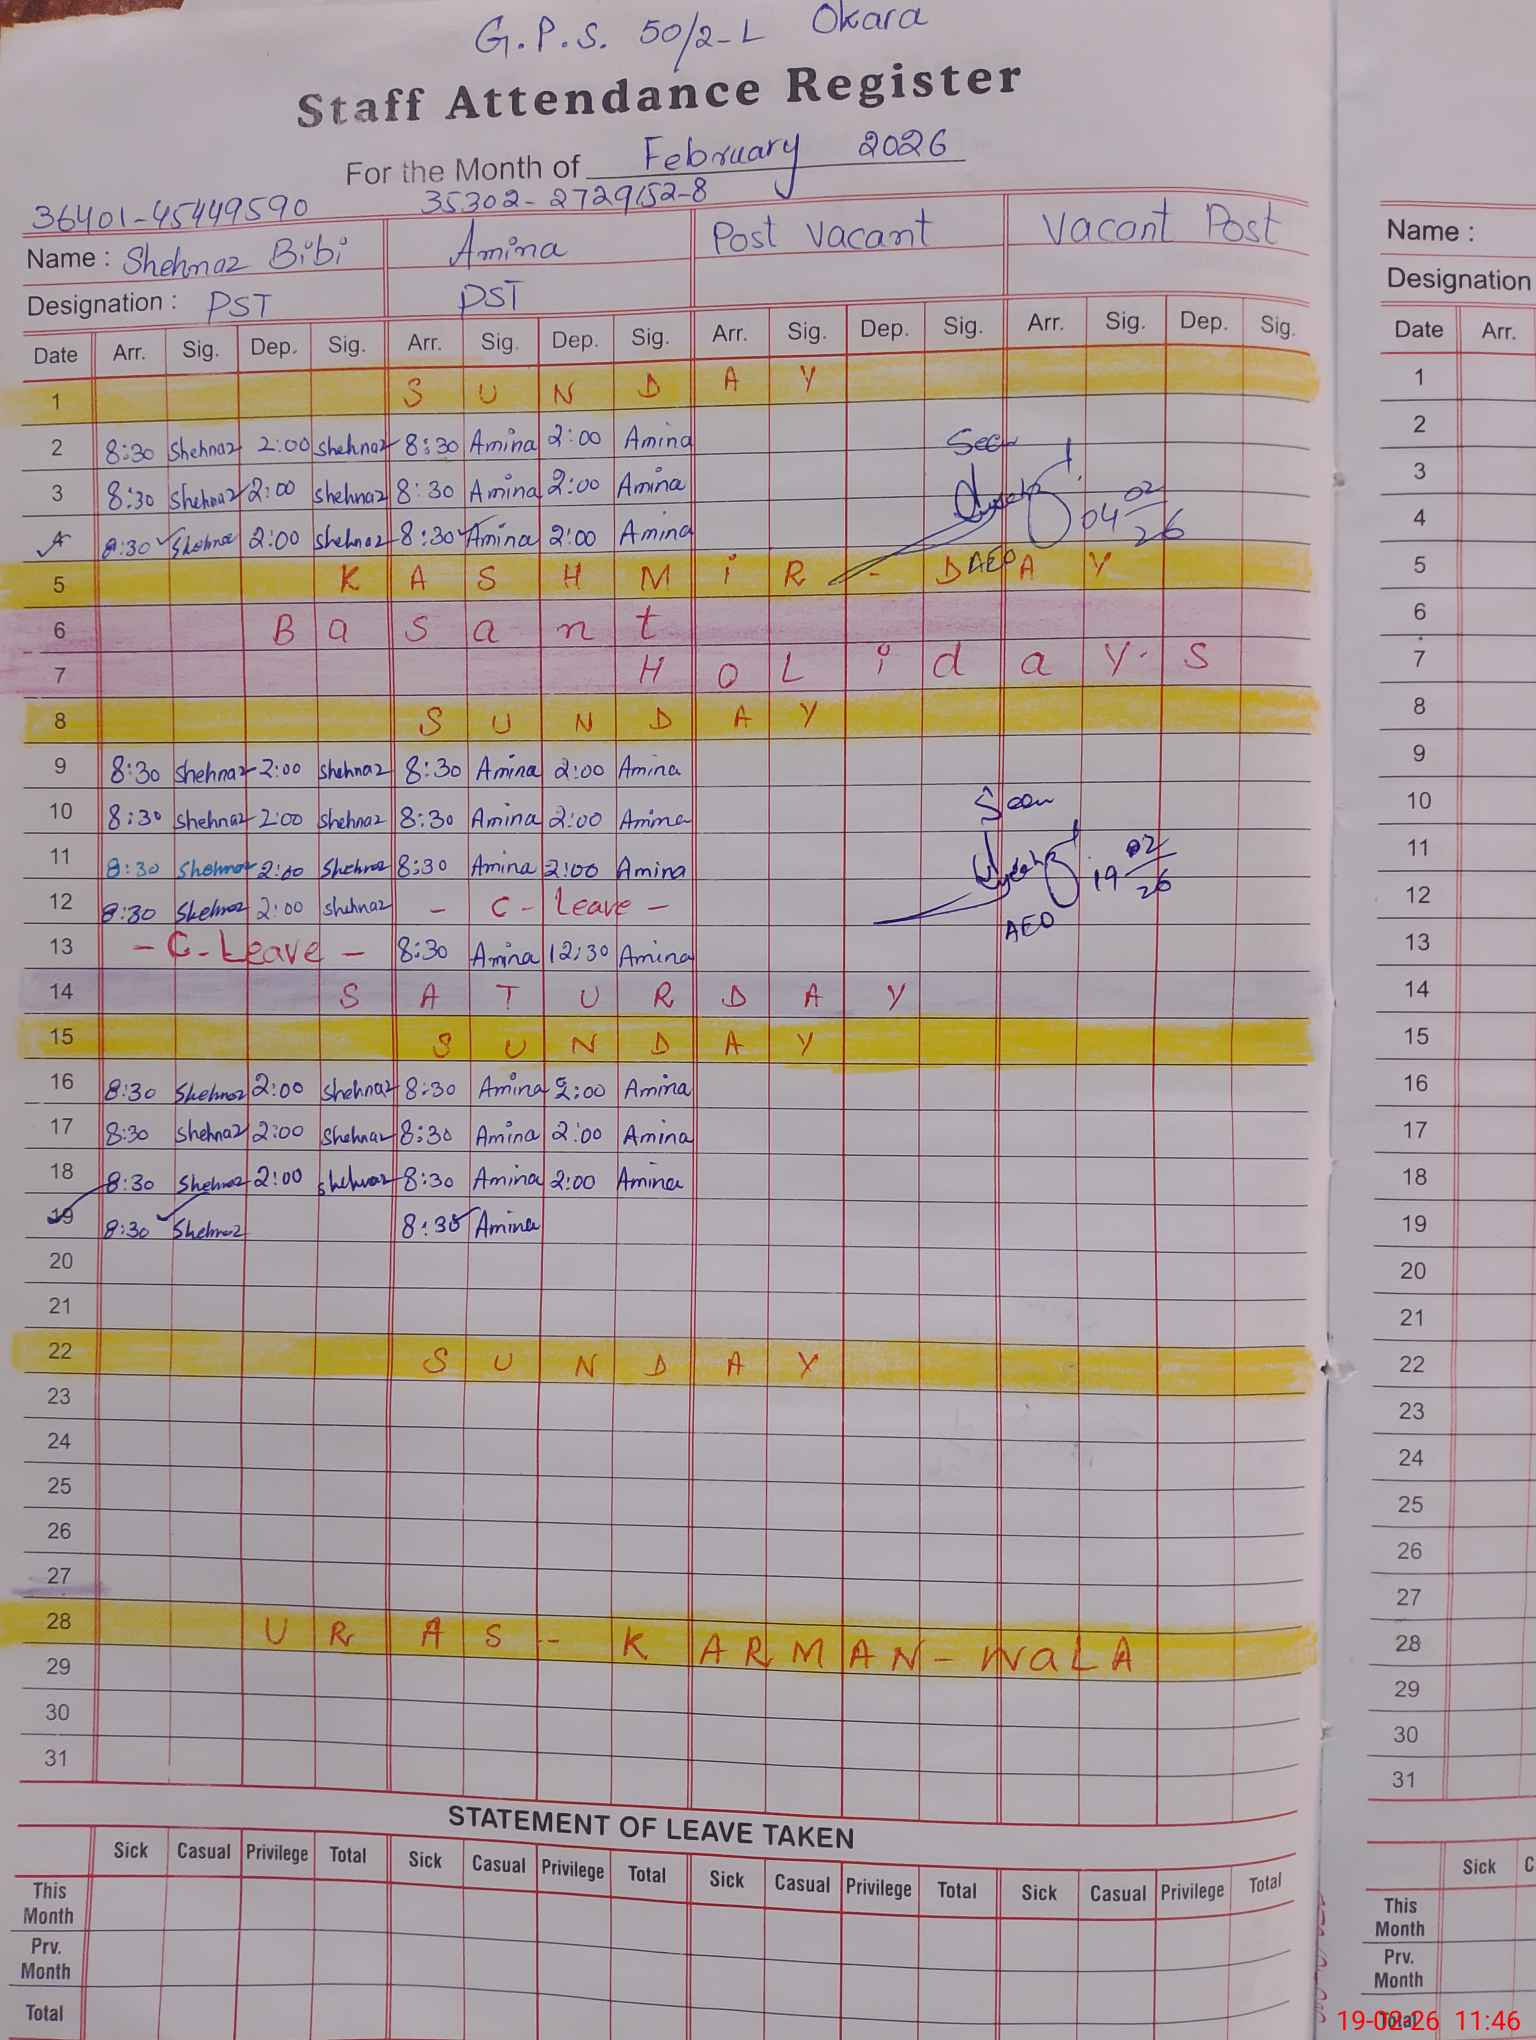 G.P.S. 50/2-L Okara
Staff Attendance Register
For the Month of February 2026
36401-45449590 35302-2729152-8
Name : Shehnaz Bibi Amina Post Vacant Vacant Post
Designation : PST PST
Date Arr. Sig. Dep. Sig. Arr. Sig. Dep. Sig. Arr. Sig. Dep. Sig. Arr. Sig. Dep. Sig.
1 SUNDAY
2 8:30 Shehnaz 2:00 Shehnaz 8:30 Amina 2:00 Amina Seen
3 8:30 Shehnaz 2:00 Shehnaz 8:30 Amina 2:00 Amina
4 8:30 Shehnaz 2:00 Shehnaz 8:30 Amina 2:00 Amina 04 02 26
AEO
5 KASHMiR - DAY
6 Basant
7 HOLidaY.S
8 SUNDAY
9 8:30 Shehnaz 2:00 Shehnaz 8:30 Amina 2:00 Amina
10 8:30 Shehnaz 2:00 Shehnaz 8:30 Amina 2:00 Amina Seen
11 8:30 Shehnaz 2:00 Shehnaz 8:30 Amina 2:00 Amina 19 02 26
12 8:30 Shehnaz 2:00 Shehnaz - C - Leave - AEO
13 - C - Leave - 8:30 Amina 12:30 Amina
14 SATURDAY
15 SUNDAY
16 8:30 Shehnaz 2:00 Shehnaz 8:30 Amina 2:00 Amina
17 8:30 Shehnaz 2:00 Shehnaz 8:30 Amina 2:00 Amina
18 8:30 Shehnaz 2:00 Shehnaz 8:30 Amina 2:00 Amina
19 8:30 Shehnaz 8:30 Amina
20
21
22 SUNDAY
23
24
25
26
27
28 URAS - KARMAN - WaLA
29
30
31
STATEMENT OF LEAVE TAKEN
Sick Casual Privilege Total Sick Casual Privilege Total Sick Casual Privilege Total Sick Casual Privilege Total
This Month
Prv. Month
Total
Name :
Designation
Date Arr.
1
2
3
4
5
6
7
8
9
10
11
12
13
14
15
16
17
18
19
20
21
22
23
24
25
26
27
28
29
30
31
Sick C
This Month
Prv. Month
Total
19-02-26 11:46